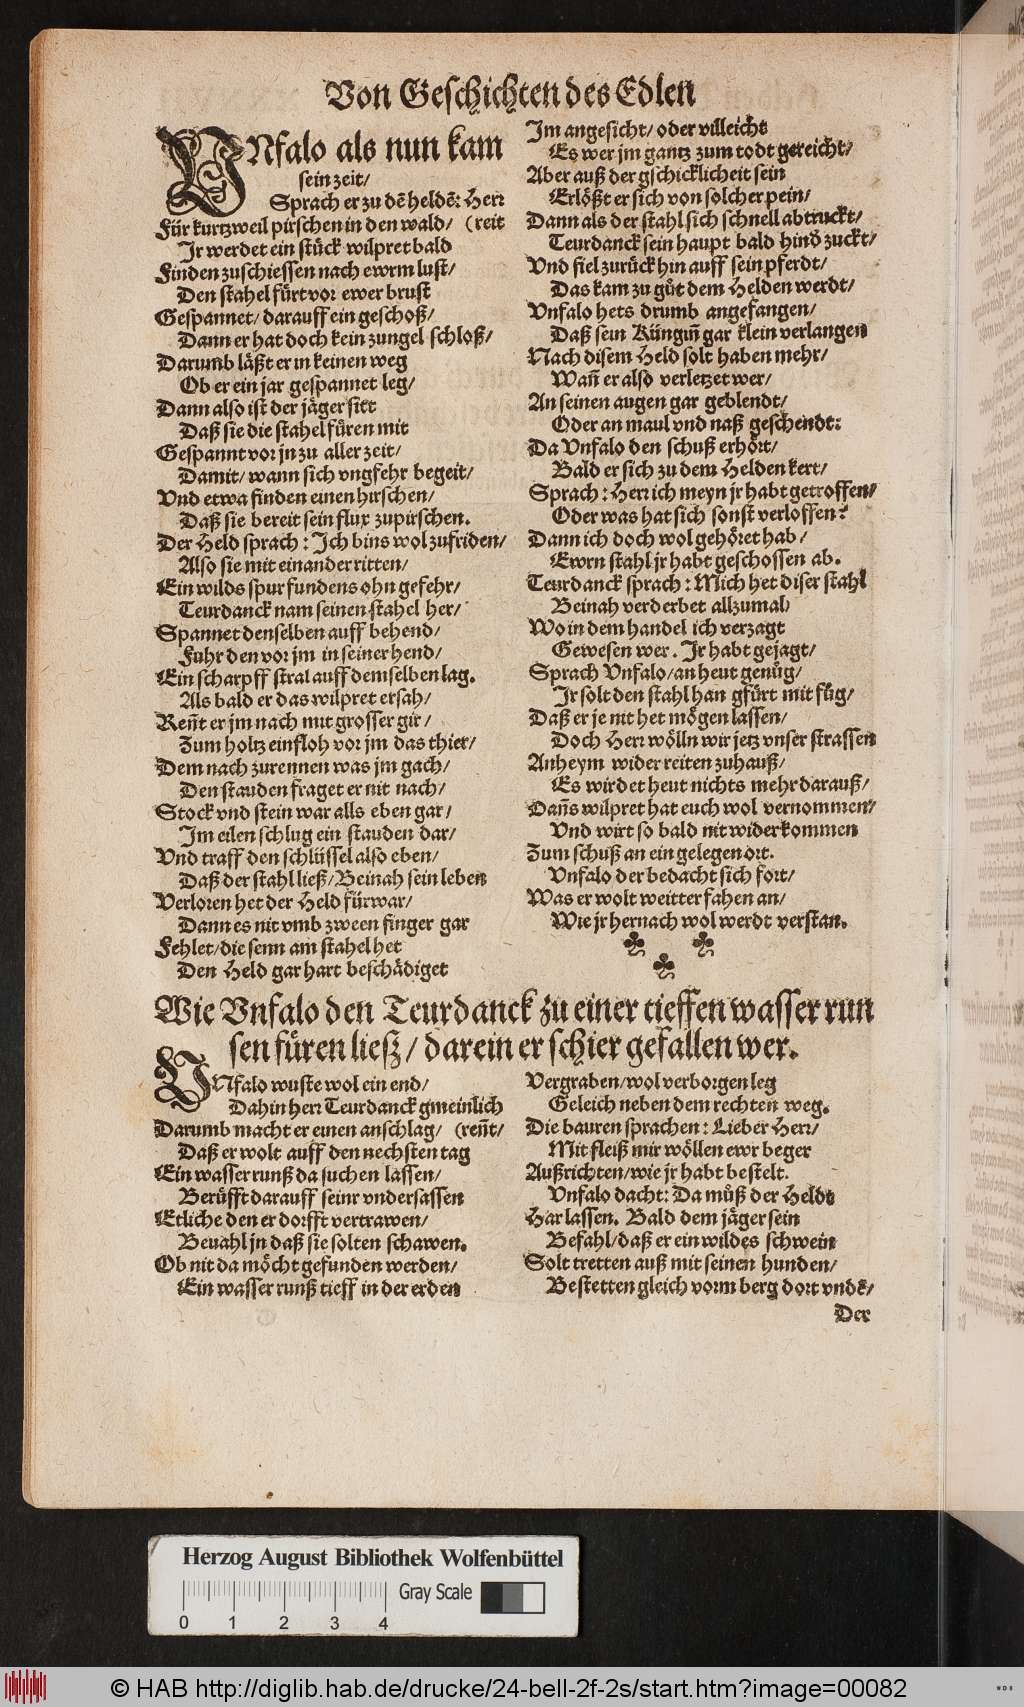 Von Geschichten des Edlen
VNfalo als nun kam
sein zeit/
Sprach er zu dē heldē: Herr
Für kurtzweil pirschen in den wald/ (reit
Ir werdet ein stück wilpret bald
Finden zuschiessen nach ewrm lust/
Den stahel fürt vor ewer brust
Gespannet/ darauff ein geschoß/
Dann er hat doch kein zungel schloß/
Darumb läßt er in keinen weg
Ob er ein jar gespannet leg/
Dann also ist der jäger sitt
Daß sie die stahel füren mit
Gespannt vor jn zu aller zeit/
Damit/ wann sich vngfehr begeit/
Vnd etwa finden einen hirschen/
Daß sie bereit sein flux zupirschen.
Der Held sprach: Ich bins wol zufriden/
Also sie mit einander ritten/
Ein wilds spur fundens ohn gefehr/
Teurdanck nam seinen stahel her/
Spannet denselben auff behend/
Fuhr den vor jm in seiner hend/
Ein scharpff stral auff demselben lag.
Als bald er das wilpret ersah/
Reñt er jm nach mit grosser gir/
Zum holtz einfloh vor jm das thier/
Dem nach zurennen was jm gach/
Den stauden fraget er nit nach/
Stock vnd stein war alls eben gar/
Im eilen schlug ein stauden dar/
Vnd traff den schlüssel also eben/
Daß der stahl ließ/ Beinah sein leben
Verloren het der Held fürwar/
Dann es nit vmb zween finger gar
Fehlet/ die senn am stahel het
Den Held gar hart beschädiget
Im angesicht/ oder villeicht
Es wer jm gantz zum todt gereicht/
Aber auß der gschicklicheit sein
Erlößt er sich von solcher pein/
Dann als der stahl sich schnell abtruckt/
Teurdanck sein haupt bald hind zuckt/
Vnd fiel zurück hin auff sein pferdt/
Das kam zu gůt dem Helden werdt/
Vnfalo hets drumb angefangen/
Daß sein Küngiñ gar klein verlangen
Nach disem Held solt haben mehr/
Wañ er also verletzet wer/
An seinen augen gar geblendt/
Oder an maul vnd naß geschendt:
Da Vnfalo den schuß erhört/
Bald er sich zu dem Helden kert/
Sprach: Herr ich meyn jr habt getroffen/
Oder was hat sich sonst verloffen?
Dann ich doch wol gehöret hab/
Ewrn stahl jr habt geschossen ab.
Teurdanck sprach: Mich het diser stahl
Beinah verderbet allzumal/
Wo in dem handel ich verzagt
Gewesen wer. Ir habt gejagt/
Sprach Vnfalo/ an heut genůg/
Ir solt den stahl han gfürt mit fůg/
Daß er je nit het mögen lassen/
Doch Herr wölln wir jetz vnser strassen
Anheym wider reiten zuhauß/
Es wirdet heut nichts mehr darauß/
Dañs wilpret hat euch wol vernommen/
Vnd wirt so bald nit widerkommen
Zum schuß an ein gelegen ort.
Vnfalo der bedacht sich fort/
Was er wolt weitter fahen an/
Wie jr hernach wol werdt verstan.
Wie Vnfalo den Teurdanck zu einer tieffen wasser run
sen füren ließ/ darein er schier gefallen wer.
VNfalo wuste wol ein end/
Dahin herr Teurdanck gmeinlich
Darumb macht er einen anschlag/ (reñt/
Daß er wolt auff den nechsten tag
Ein wasser runß da suchen lassen/
Berüfft darauff seinr vndersassen
Etliche den er dorfft vertrawen/
Bevahl jn daß sie solten schawen.
Ob nit da möcht gefunden werden/
Ein wasser runß tieff in der erden
Vergraben/ wol verborgen leg
Geleich neben dem rechten weg.
Die bauren sprachen: Lieber Herr/
Mit fleiß mir wöllen ewr beger
Außrichten/ wie jr habt bestelt.
Vnfalo dacht: Da můß der Heldt
Har lassen. Bald dem jäger sein
Befahl/ daß er ein wildes schwein
Solt tretten auß mit seinen hunden/
Bestetten gleich vorm berg dort vndē/
Der
Herzog August Bibliothek Wolfenbüttel
0 1 2 3 4
Gray Scale
© HAB http://diglib.hab.de/drucke/24-bell-2f-2s/start.htm?image=00082